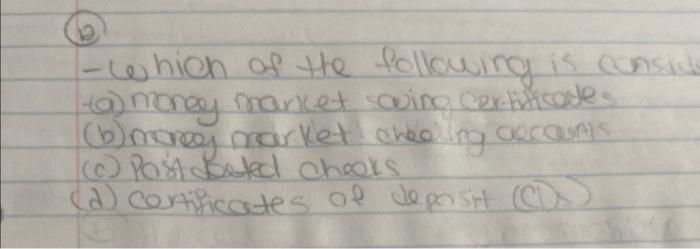 (12)
- which of the following is consid
(a) money market saving certificates
(b) money market checking accounts
(c) Postdated checks
(d) certificates of deposit (CDs)